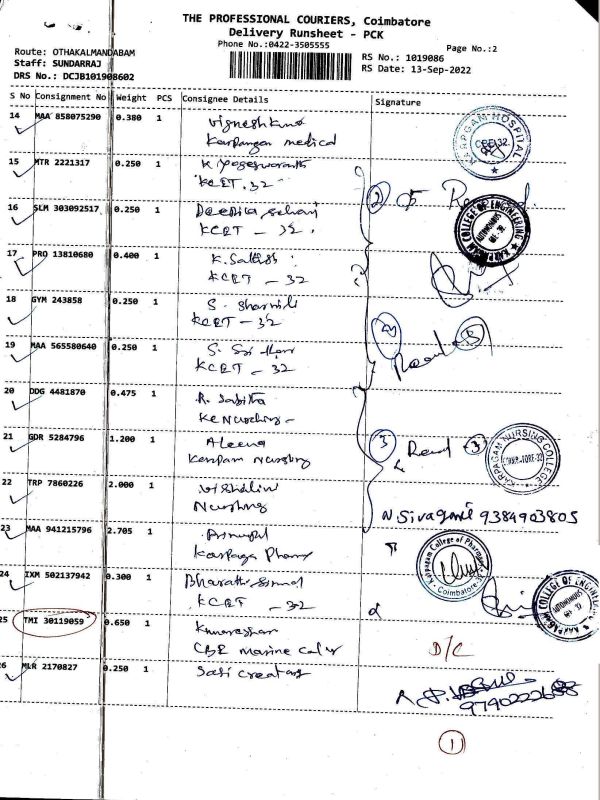 THE PROFESSIONAL COURIERS, Coimbatore
Delivery Runsheet - PCK
Phone No.:0422-3505555
Page No.:2
Route: OTHAKALMANDABAM
Staff: SUNDARRAJ
DRS No.: DCJB101908602
RS No.: 1019086
RS Date: 13-Sep-2022
S No Consignment No Weight PCS Consignee Details Signature
14 MAA 858075290 0.380 1
Karpagam medical
KARPAGAM HOSPITAL
CBE-32
15 MTR 2221317 0.250 1 K. Yogeswaranth
KCET. 32
16 SLM 303092517 0.250 1 Deepika
KCET - 32.
KARPAGAM COLLEGE OF ENGINEERING
AUTONOMOUS
CBE-32
17 PRO 13810680 0.400 1 K. Sathish
KCET - 32
18 GYM 243858 0.250 1 S. Sharmili
KCET - 32
19 MAA 565580640 0.250 1 S. Sri Hari
KCET - 32
20 DDG 4481870 0.475 1 R. Sabitha
KC Nursing -
21 GDR 5284796 1.200 1 Aleena
Karpam Nursing
3 Recd 3
KARPAGAM NURSING COLLEGE
COIMBATORE-32
22 TRP 7860226 2.000 1 Vishalini
Nursing
N Sivagami 9384903805
23 MAA 941215796 2.705 1
Karpaga Pharmy
Karpagam College of Pharmacy
Coimbatore
24 IXM 502137942 0.300 1 Bharath
KCET - 32
KARPAGAM COLLEGE OF ENGINEERING
AUTONOMOUS
CBE-32
25 TMI 30119059 0.650 1 Kumareshan
CBE marine
D/C
26 MLR 2170827 0.250 1 Sasi creations
1